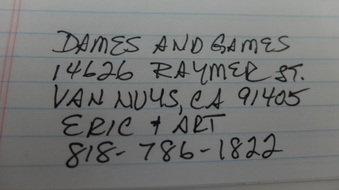 DAMES AND GAMES
14626 RAYMER ST.
VAN NUYS, CA 91405
ERIC + ART
818-786-1822